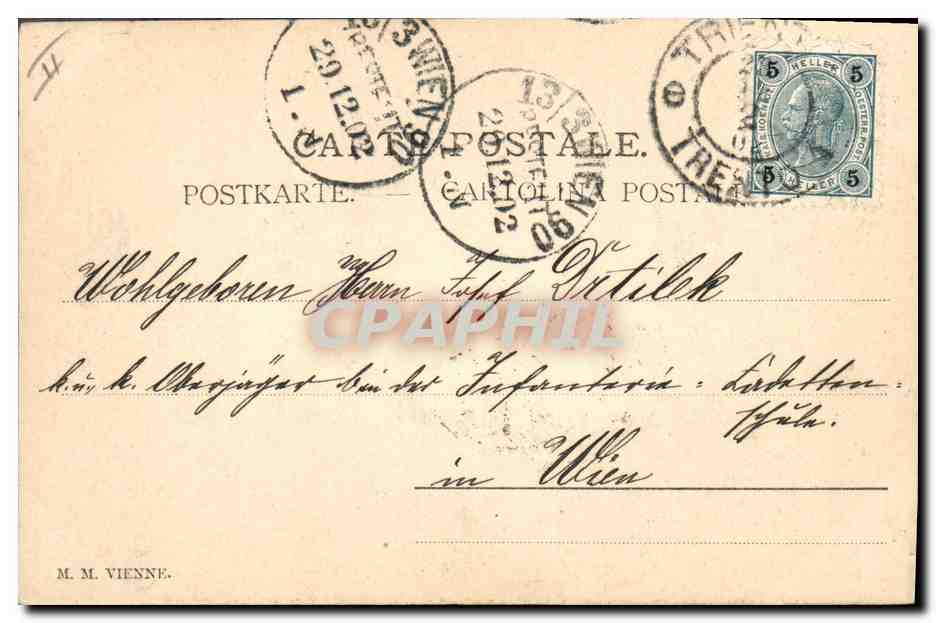 13/3 WIEN 90
BESTELLT
29.12.02
1.N
13/3 WIEN 90
BESTELLT
29.12.02
1.N
TRIENT
TRENTO
5 HELLER 5
KAIS. KOENIGL. OESTERR. POST
5 HELLER 5
CARTE POSTALE.
POSTKARTE. — CARTOLINA POSTALE
Wohlgeboren Herrn Josef Drtilek
CPAPHIL
k. u. k. Oberjäger bei der Infanterie = Cadetten =
schule.
in Wien
M. M. VIENNE.